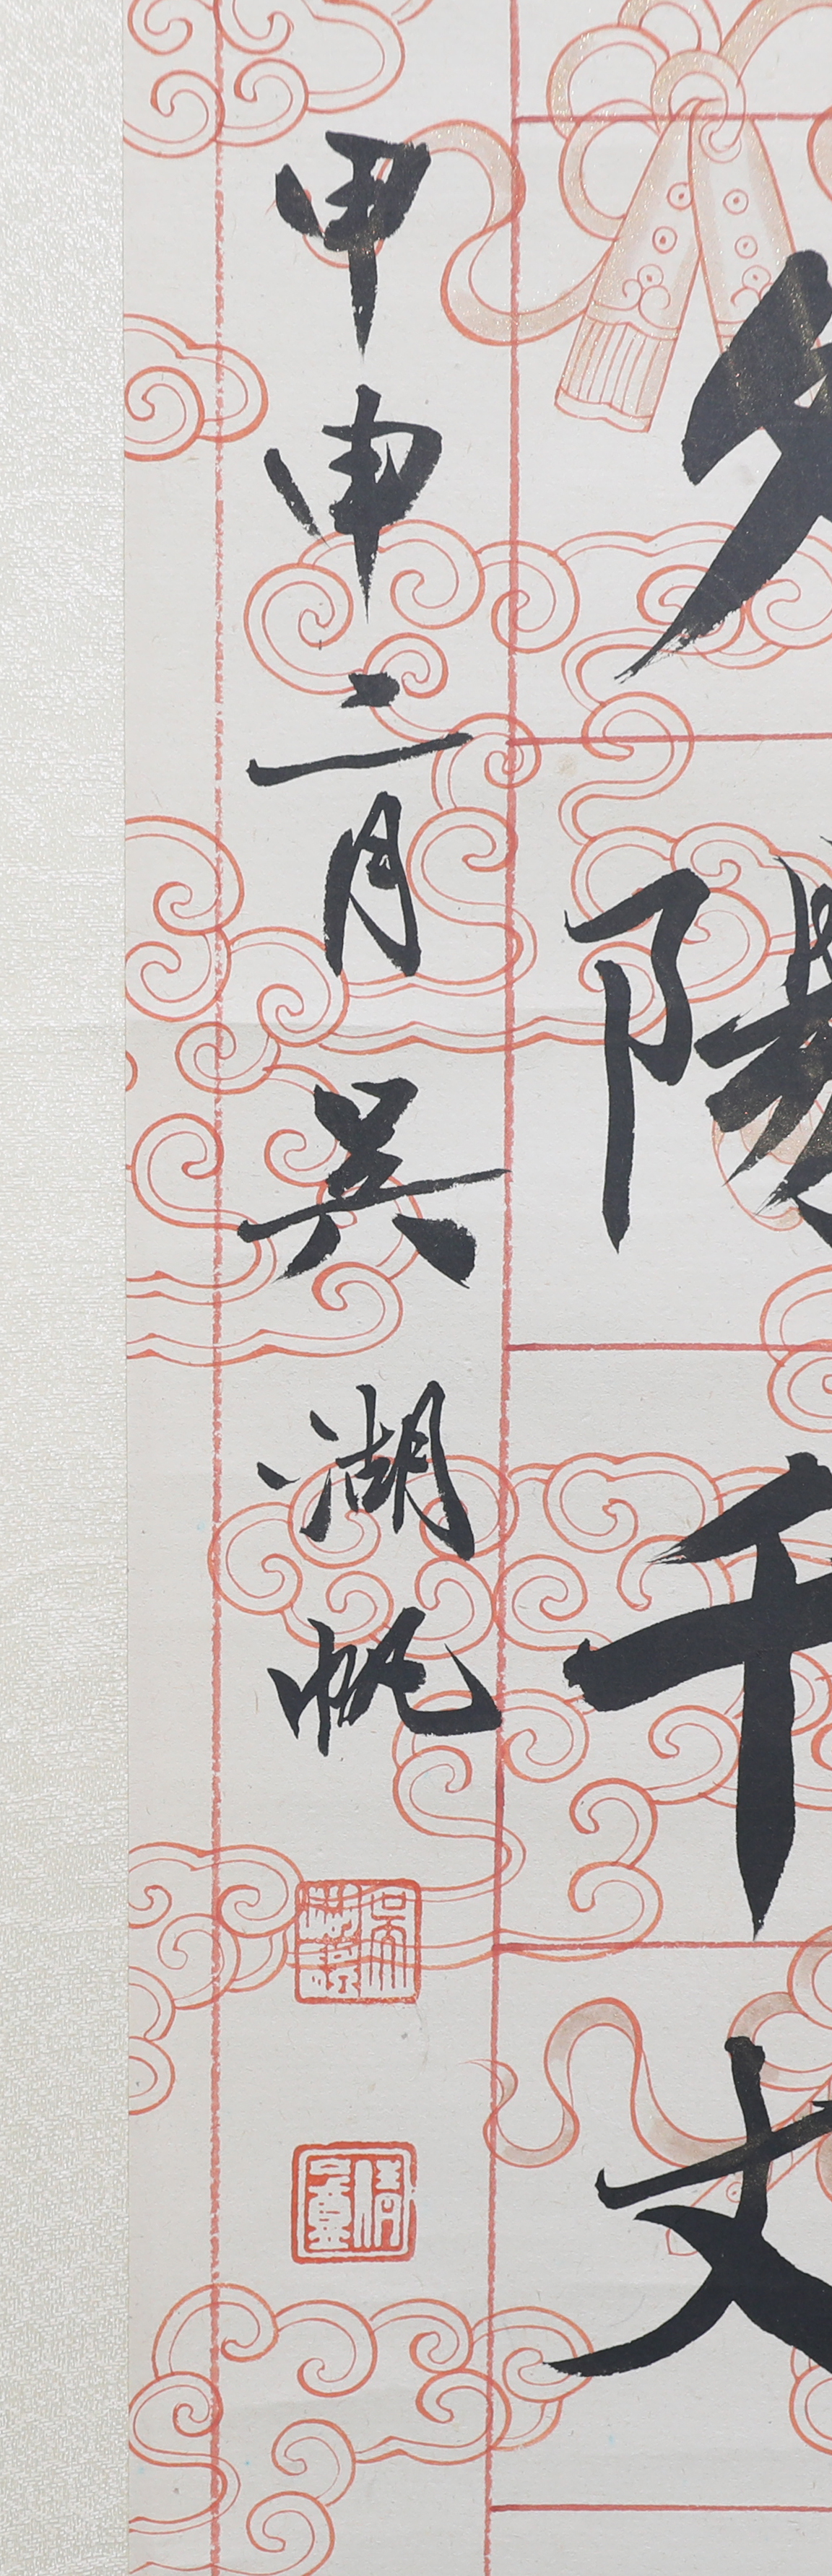 陽千丈
甲申二月吳湖帆
倩盦